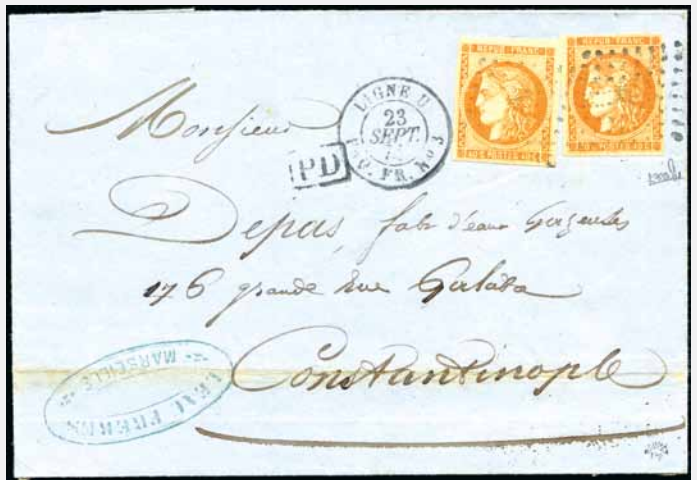 REPUB. FRANC.
REPUB. FRANC.
40 C. POSTES 40 C.
POSTES
LIGNE U
23
SEPT.
FR. No 3
PD
Monsieur
Depas, fabt d'eaux Gazeuses
176 grande Rue Galata
Constantinople
FRERES
MARSEILLE